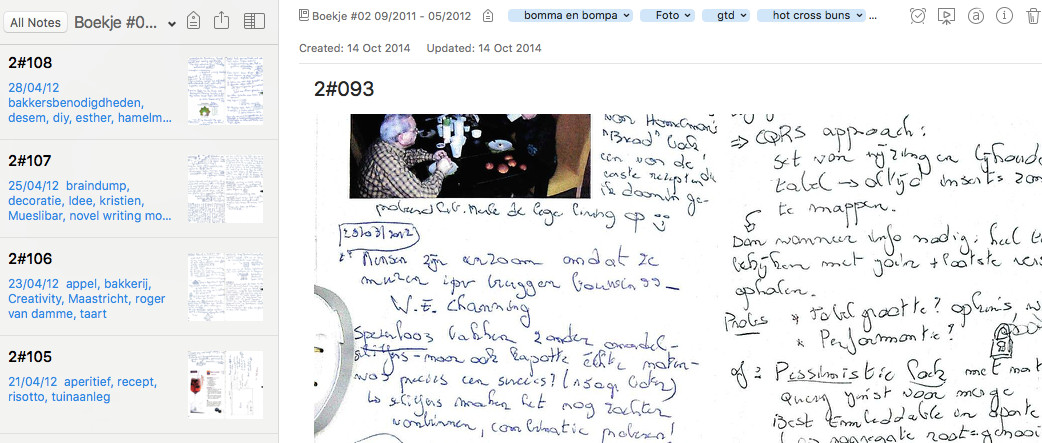 All Notes
Boekje #0...
2#108
28/04/12
bakkersbenodigdheden,
desem, diy, esther, hamelm...
2#107
25/04/12 braindump,
decoratie, Idee, kristien,
Mueslibar, novel writing mo...
2#106
23/04/12 appel, bakkerij,
Creativity, Maastricht, roger
van damme, taart
2#105
21/04/12 aperitief, recept,
risotto, tuinaanleg
Boekje #02 09/2011 - 05/2012
bomma en bompa
Foto
gtd
hot cross buns
...
Created: 14 Oct 2014 Updated: 14 Oct 2014
2#093
"Bread"
een van de
eerste recepten
is daarin ge-
de lage
Mensen zijn eenzaam omdat ze
muren ipv bruggen bouwen
W.E. Channing
Speenloos bakken zonder
maar ook kapotte
was precies een succes?
maken het nog zachter
vanbinnen, combinatie proberen!
⇒ CQRS approach:
set van wijzingen bijhouden
tabel → altijd inserts
te mappen.
Dan wanneer info nodig: heel
bekijken met join + laatste
ophalen.
Probs * tabel grootte? opkuis,
* Performantie?
of: Pessimistic Lock met
query juist voor merge
Best Embeddable in aparte
aggregate root